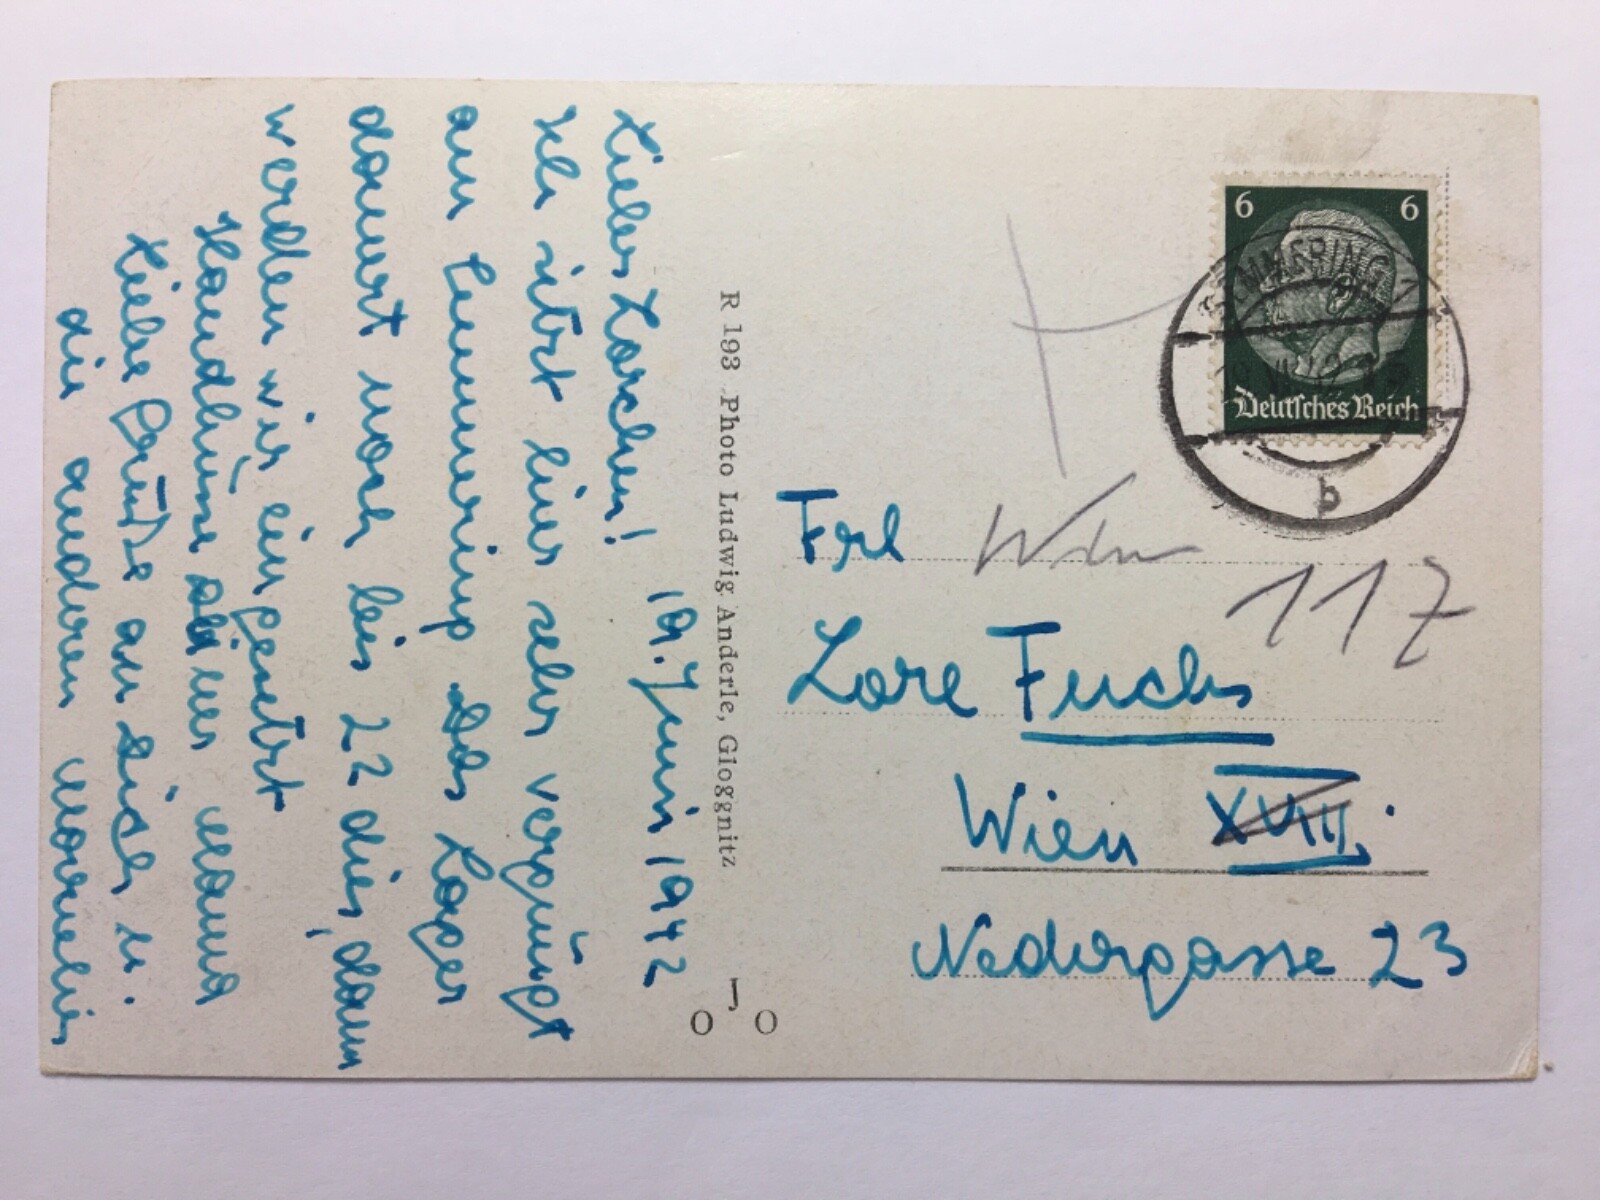 19. Juni 1942
Liebes Lorchen!
Ich sitze hier sehr vergnügt
am Semmering. Das Lager
dauert noch bis 22 dies, dann
werden wir eingesetzt
Handküsse Mama
Liebe Grüße an Dich u.
die anderen
R 193 Photo Ludwig Anderle, Gloggnitz
J
O O
6 6
Deutsches Reich
SEMMERING 1
b
Frl
Wien
117
Lore Fuchs
Wien XVIII.
Nedergasse 23